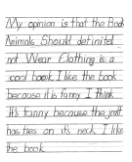 My opinion is that the Book
Animals Should definitel
not Wear Clothing is a
cool book I like the book
because it is funny I think
It's funny because the
has ties on it's neck I like
the book